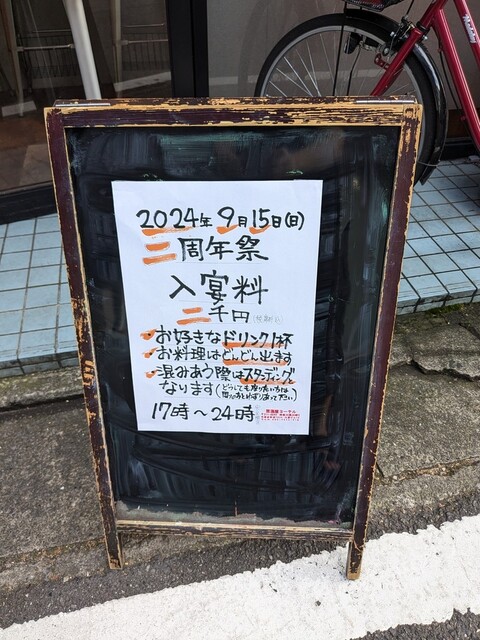 2024年9月15日(日)
二周年祭
入宴料
二千円
・お好きなドリンク1杯
・お料理はどんどん出ます
・混みあう際はスタンディングと
なります(どうしても座りたい方は
17時～24時